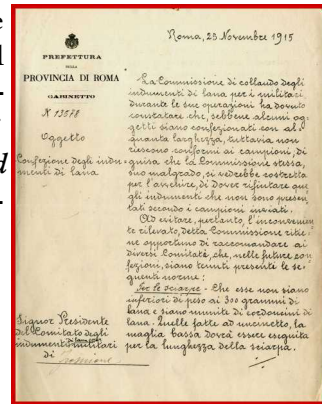 Roma, 23 Novembre 1915
PREFETTURA
DELLA
PROVINCIA DI ROMA
GABINETTO
N 13578
Oggetto
Confezione degli indu-
menti di lana
La Commissione di collaudo degli
indumenti di lana per i militari,
durante le sue operazioni ha dovuto
constatare che, sebbene alcuni og-
getti siano confezionati con al-
quanta larghezza, tuttavia non
riescono conformi ai campioni, di
guisa che la Commissione stessa,
suo malgrado, si vedrebbe costretta
per l'avvenire, di dover rifiutare que
gli indumenti che non siano presen
tati secondo i campioni inviati.
Ad evitare, pertanto, l'inconvenien
te rilevato, detta Commissione ritie-
ne opportuno di raccomandare ai
diversi Comitati, che, nelle future con
fezioni, siano tenute presenti le se
guenti norme:
Per le sciarpe - Che esse non siano
inferiori di peso ai 300 grammi di
lana e siano munite di cordoncini di
lana. Quelle fatte ad uncinetto, la
maglia bassa dovrà essere eseguita
per la lunghezza della sciarpa.
Signor Presidente
del Comitato degli
indumenti militari
di lana
di Frosinone
e
d